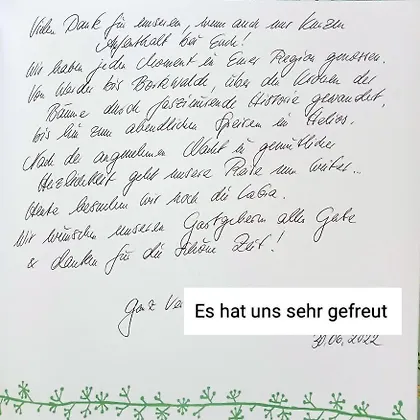 Vielen Dank für unseren, wenn auch nur kurzen
Aufenthalt bei Euch!
Wir haben jeden Moment in Eurer Region genossen.
Von Werder bis Borkwalde, über die Kronen der
Bäume durch faszinierende Historie gewandert,
bis hin zum abendlichen Speisen in Helios.
Nach der angenehmen Nacht in gemütlicher
Herzlichkeit geht unsere Reise nun weiter...
Heute besuchen wir noch die LaGa.
Wir wünschen unseren Gastgebern alles Gute
& danken für die schöne Zeit!
Ganz
Es hat uns sehr gefreut
30.06.2022